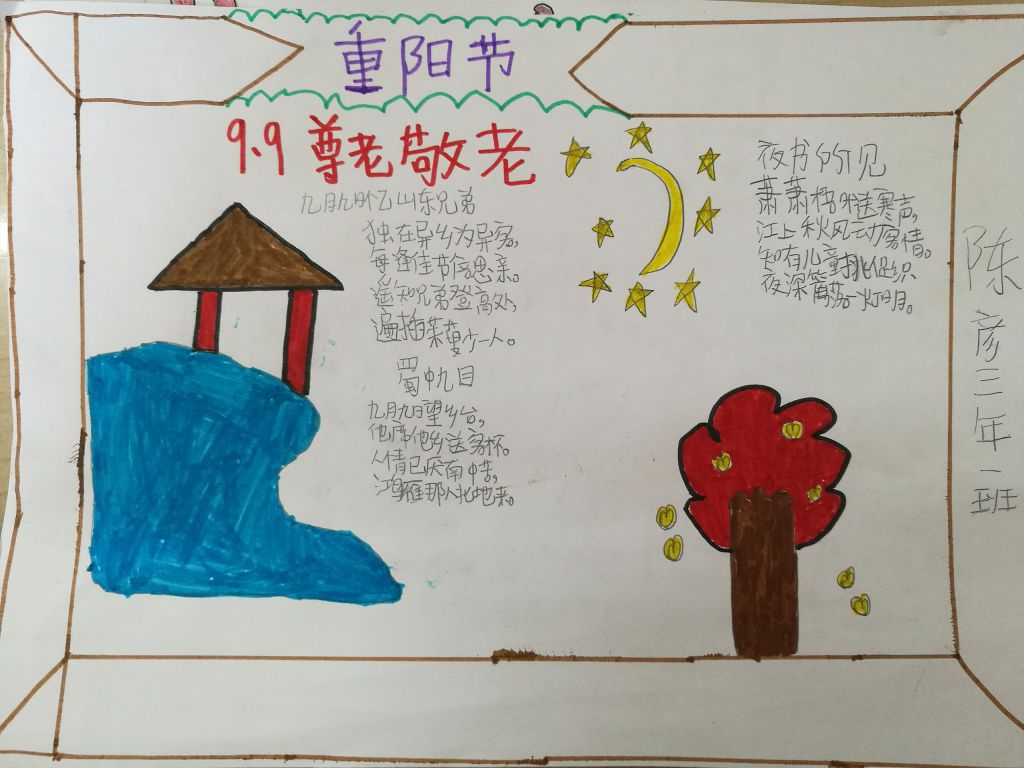 重阳节
9.9 尊老敬老
九月九日忆山东兄弟
独在异乡为异客,
每逢佳节倍思亲。
遥知兄弟登高处,
遍插茱萸少一人。
蜀中九日
九月九日望乡台,
他席他乡送客杯。
人情已厌南中苦,
鸿雁那从北地来。
夜书所见
萧萧梧叶送寒声,
江上秋风动客情。
知有儿童挑促织
夜深篱落一灯明。
陈彦三年一班